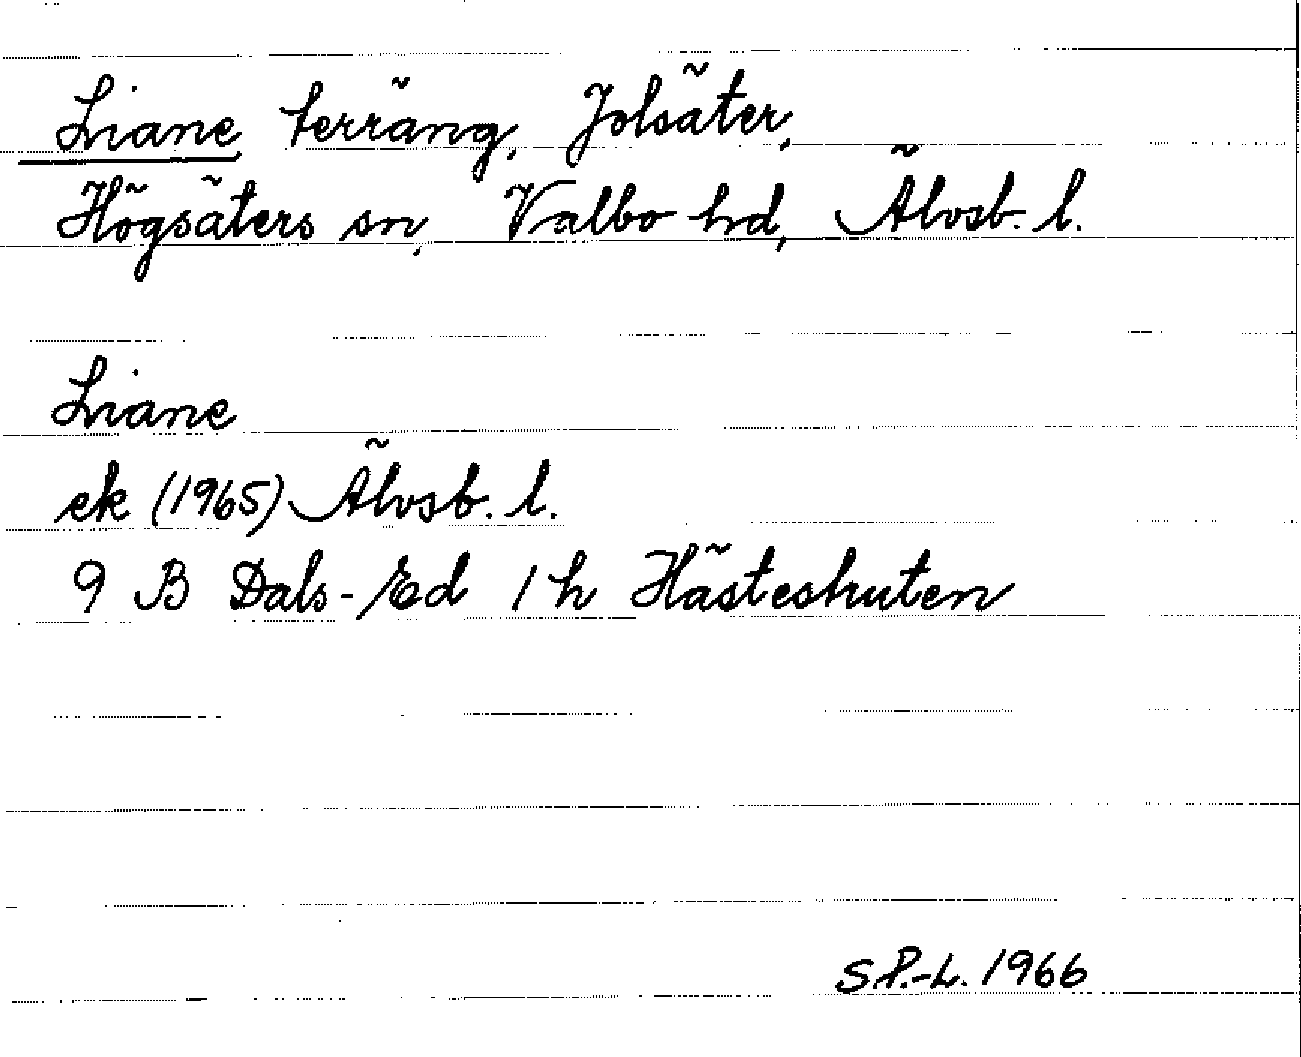 Liane, terräng, Jolsäter,
Högsäters sn, Valbo hd, Älvsb. l.
Liane
ek (1965) Älvsb. l.
9 B Dals-Ed 1 h Hästeskuten
S.P.-L. 1966